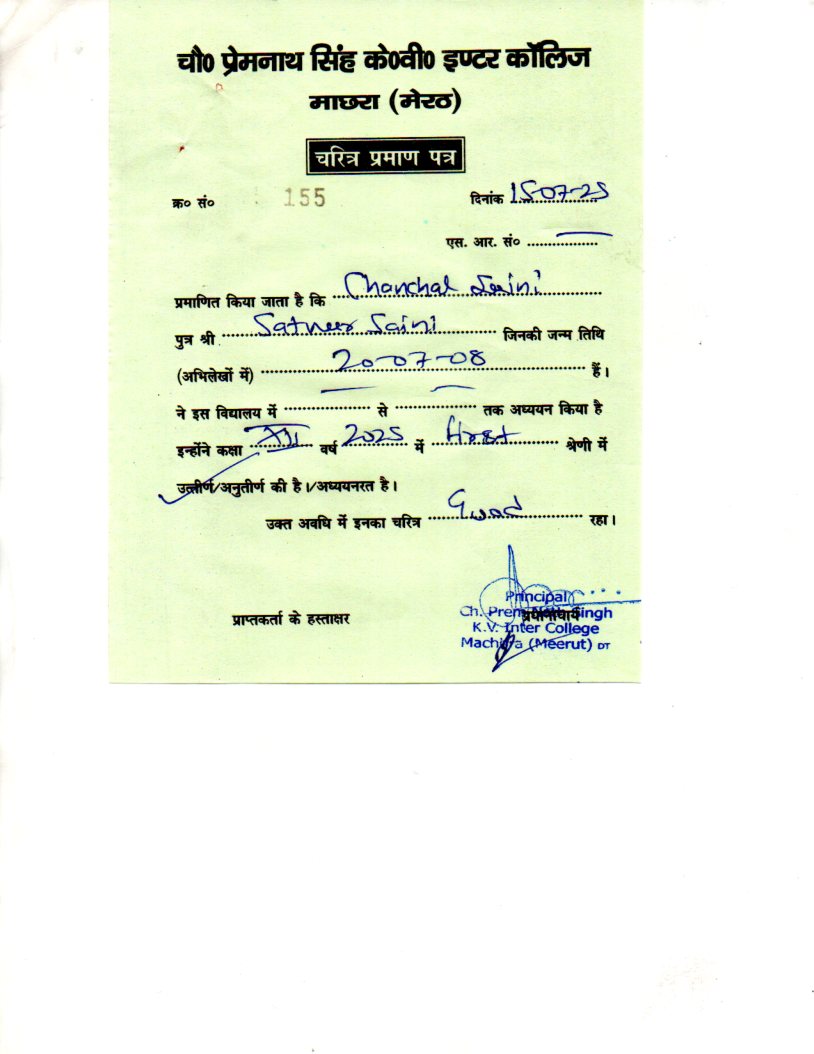 चौ० प्रेमनाथ सिंह के०वी० इण्टर कॉलिज
माछरा (मेरठ)
चरित्र प्रमाण पत्र
क्र० सं० 155 दिनांक 15-07-25
एस. आर. सं० ..................
प्रमाणित किया जाता है कि Chanchal Saini
पुत्र श्री Satveer Saini जिनकी जन्म तिथि
(अभिलेखों में) 20-07-08 हैं।
ने इस विद्यालय में .................. से .................. तक अध्ययन किया है
इन्होंने कक्षा XII वर्ष 2025 में First श्रेणी में
उत्तीर्ण/अनुतीर्ण की है।/अध्ययनरत है।
उक्त अवधि में इनका चरित्र Good रहा।
प्राप्तकर्ता के हस्ताक्षर प्रधानाचार्य
Principal
Ch. Prem Nath Singh
K.V. Inter College
Machhra (Meerut) DT